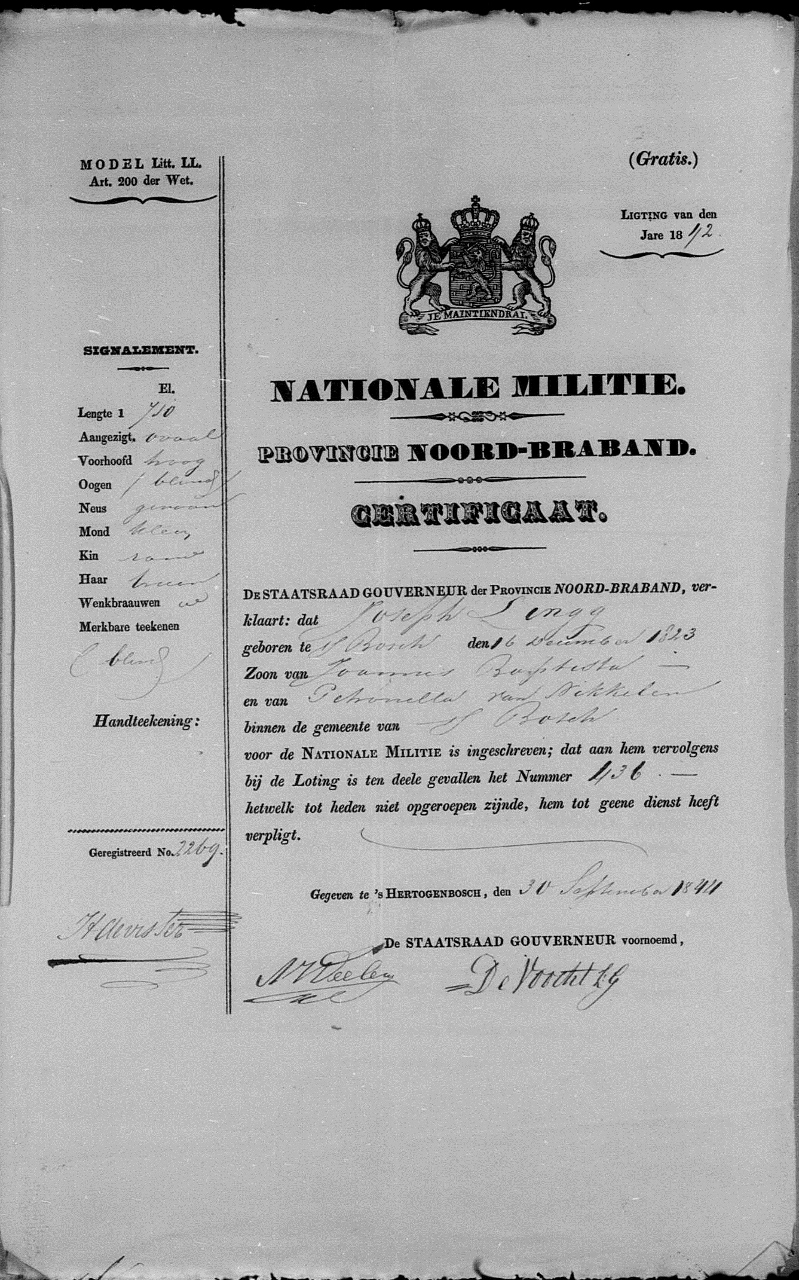 MODEL Litt. LL.
Art. 200 der Wet.
SIGNALEMENT.
El.
Lengte 1 710
Aangezigt. ovaal
Voorhoofd hoog
Oogen blind
Neus gewoon
Mond klein
Kin rond
Haar bruin
Wenkbraauwen id
Merkbare teekenen
blind
Handteekening:
Geregistreerd No. 2269.
(Gratis.)
LIGTING van den
Jare 1842.
JE MAINTIENDRAI.
NATIONALE MILITIE.
PROVINCIE NOORD-BRABAND.
CERTIFICAAT.
DE STAATSRAAD GOUVERNEUR der PROVINCIE NOORD-BRABAND, ver-
klaart: dat Joseph
geboren te 's Bosch den 16 December 1823
Zoon van Joannes Baptista —
en van Petronella van Nikkelen
binnen de gemeente van 's Bosch
voor de NATIONALE MILITIE is ingeschreven; dat aan hem vervolgens
bij de Loting is ten deele gevallen het Nummer 436. —
hetwelk tot heden niet opgeroepen zijnde, hem tot geene dienst heeft
verpligt.
Gegeven te 's HERTOGENBOSCH, den 30 September 1844
De STAATSRAAD GOUVERNEUR voornoemd,